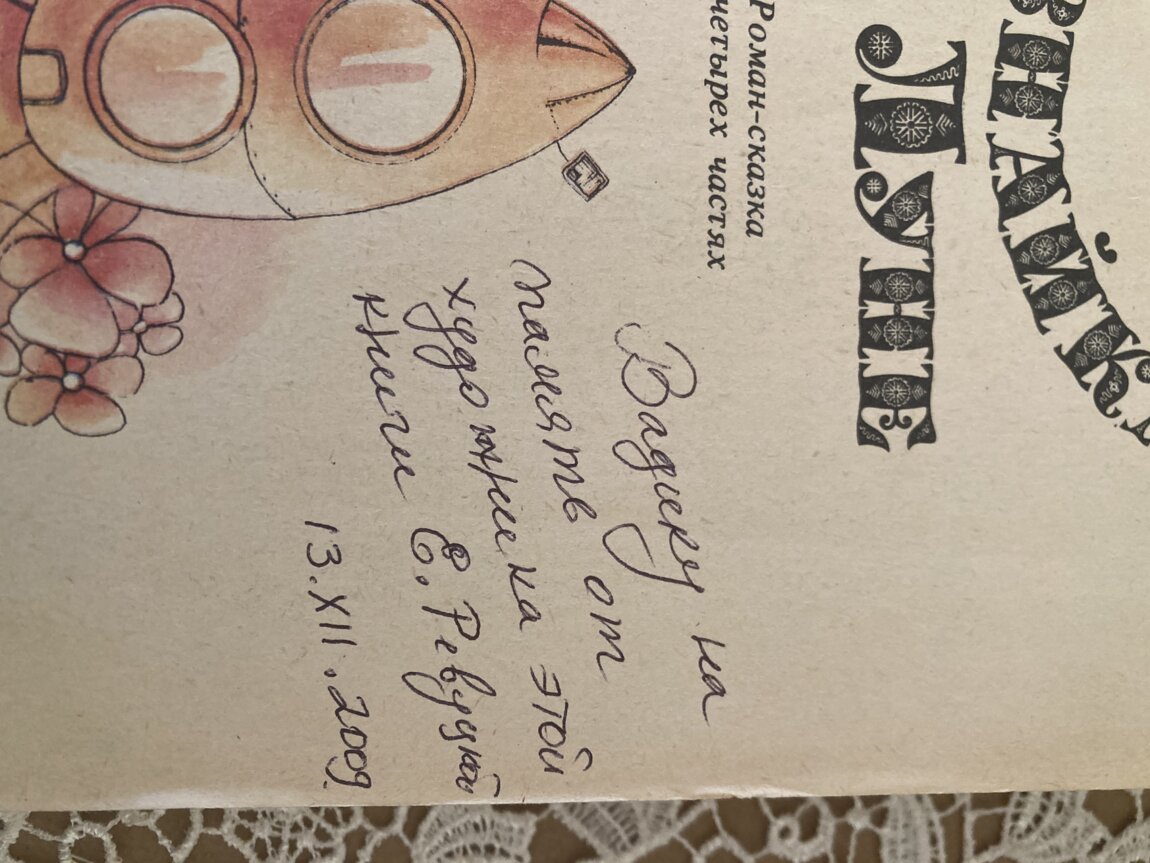 ЗНАЙКА
ЛУНЕ
Роман-сказка
четырех частях
Вадику на
память от
художника этой
книги Е. Ревуцкой
13.XII.2009